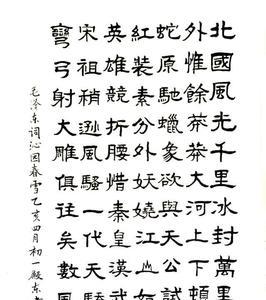 北國風光千里冰封萬里
外惟餘莽莽大河上下頓
蛇原馳蠟象欲與天公試
紅裝素分外妖嬈江山如
英雄競折腰惜秦皇漢武
宋祖稍遜風騷一代天
彎弓射大雕俱往矣數風
毛澤东詞沁园春雪乙亥四月初一殿东